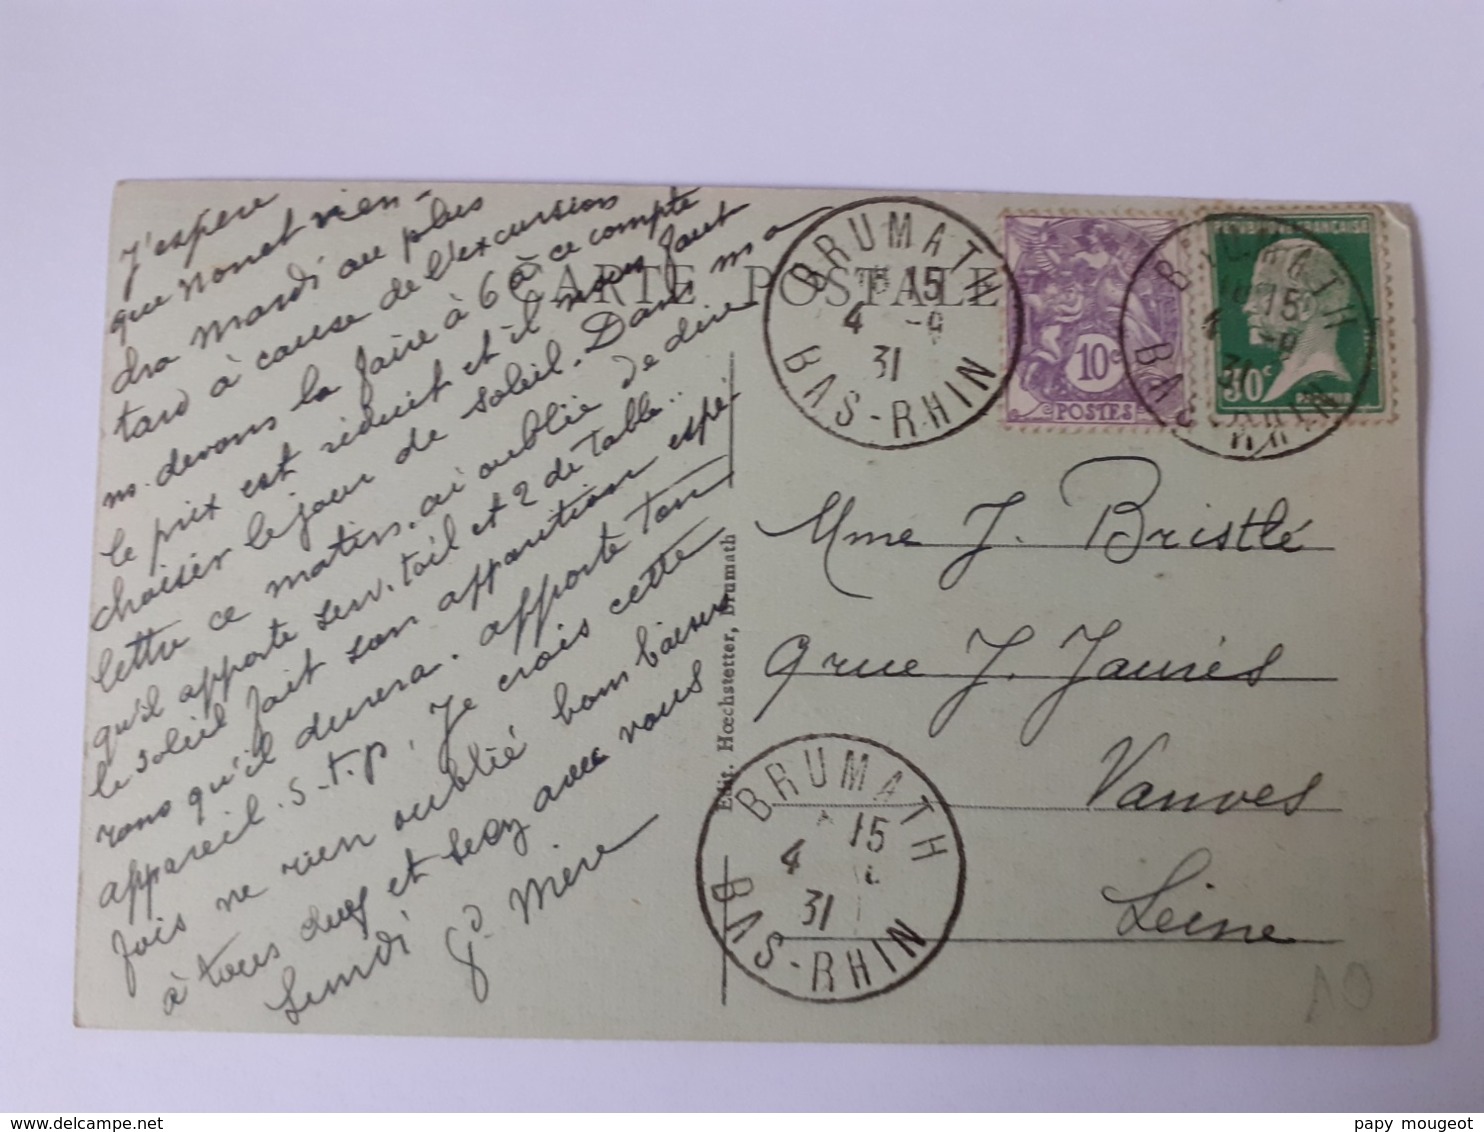 J'espère
que Nonet vien-
dra Mardi au plus
tard à cause de l'excursion
ns. devons la faire à 6 à ce compte
le prix est réduit et il nous faut
choisir le jour de soleil. Dans ma
lettre ce matin, ai oublié de dire
qu'il apporte serv. toil et 2 de table..
le soleil fait son apparition espé-
rons qu'il durera. apporte ton
appareil. s.t.p. Je crois cette
fois ne rien oublié bons baisers
à tous deux et avec vous
Lundi Gd. Mère
CARTE POSTALE
Edit. Hœchstetter, Brumath
BRUMATH
15
4 -8
31
BAS-RHIN
10c
POSTES
BRUMATH
15
4 -8
31
BAS-RHIN
30c
Mme J. Bristlé
9 rue J. Jaurès
Vanves
Seine
BRUMATH
15
4
31
BAS-RHIN
10
delcampe.net
papy mougeot